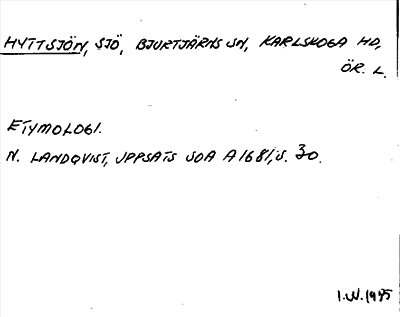 HYTTSJÖN, SJÖ, BJURTJÄRNS SN, KARLSKOGA HD,
ÖR. L.
ETYMOLOGI.
N. LANDQVIST, UPPSATS SOA A1681, S. 30.
I.W. 1995